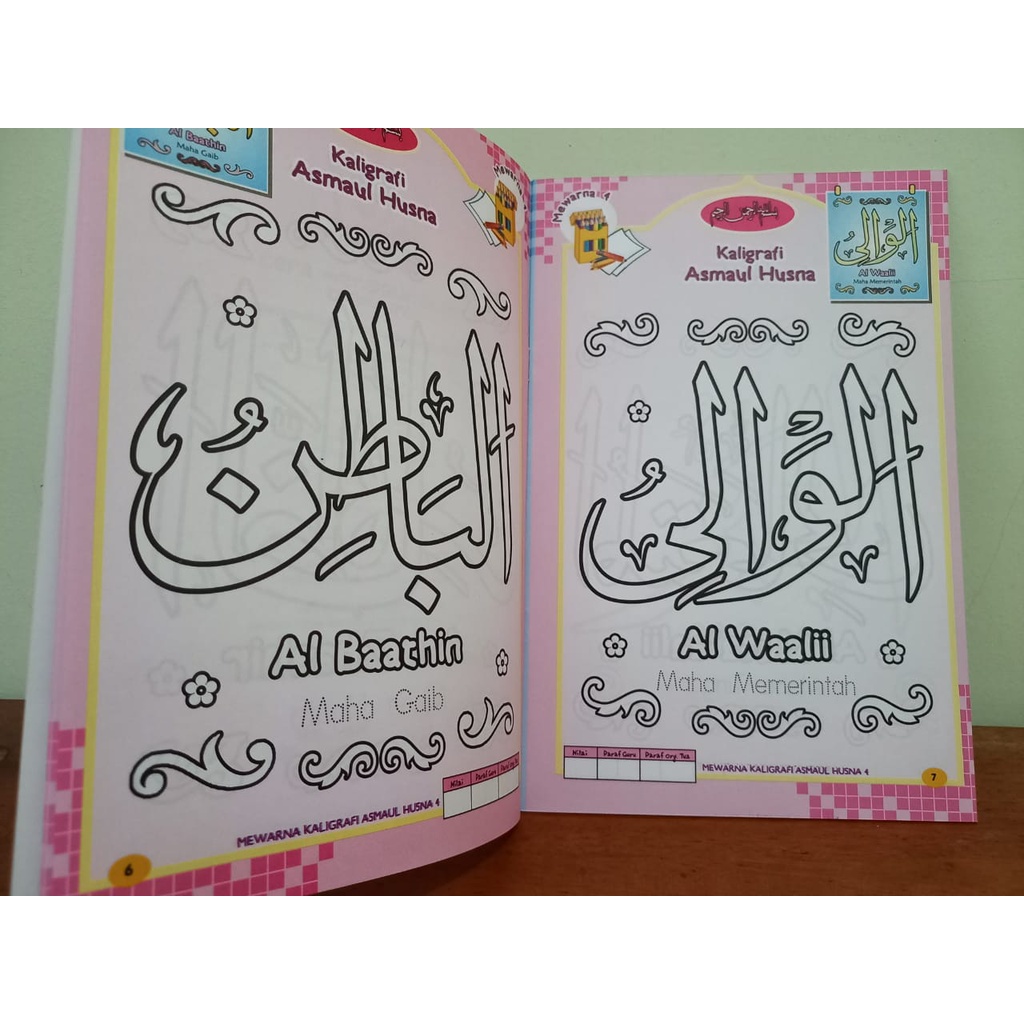 Al Baathin
Maha Gaib
Kaligrafi
Asmaul Husna
الباطن
Al Baathin
Maha Gaib
Nilai Paraf Guru
MEWARNA KALIGRAFI ASMAUL HUSNA 4
6
Mewarna 4
Kaligrafi
Asmaul Husna
الْوَالِيُ
Al Waalii
Maha Memerintah
الْوَالِيُ
Al Waalii
Maha Memerintah
Nilai Paraf Guru Paraf Org. Tua
MEWARNA KALIGRAFI ASMAUL HUSNA 4
7